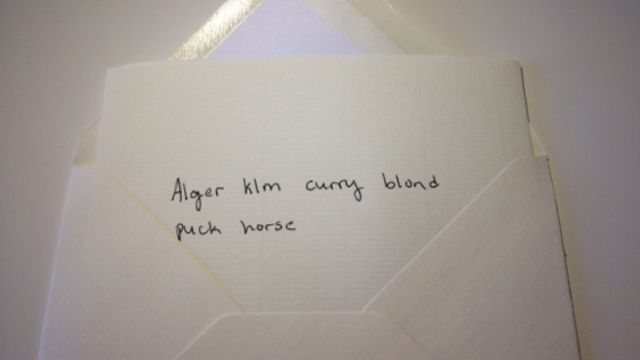 Alger klm curry blond
puck horse